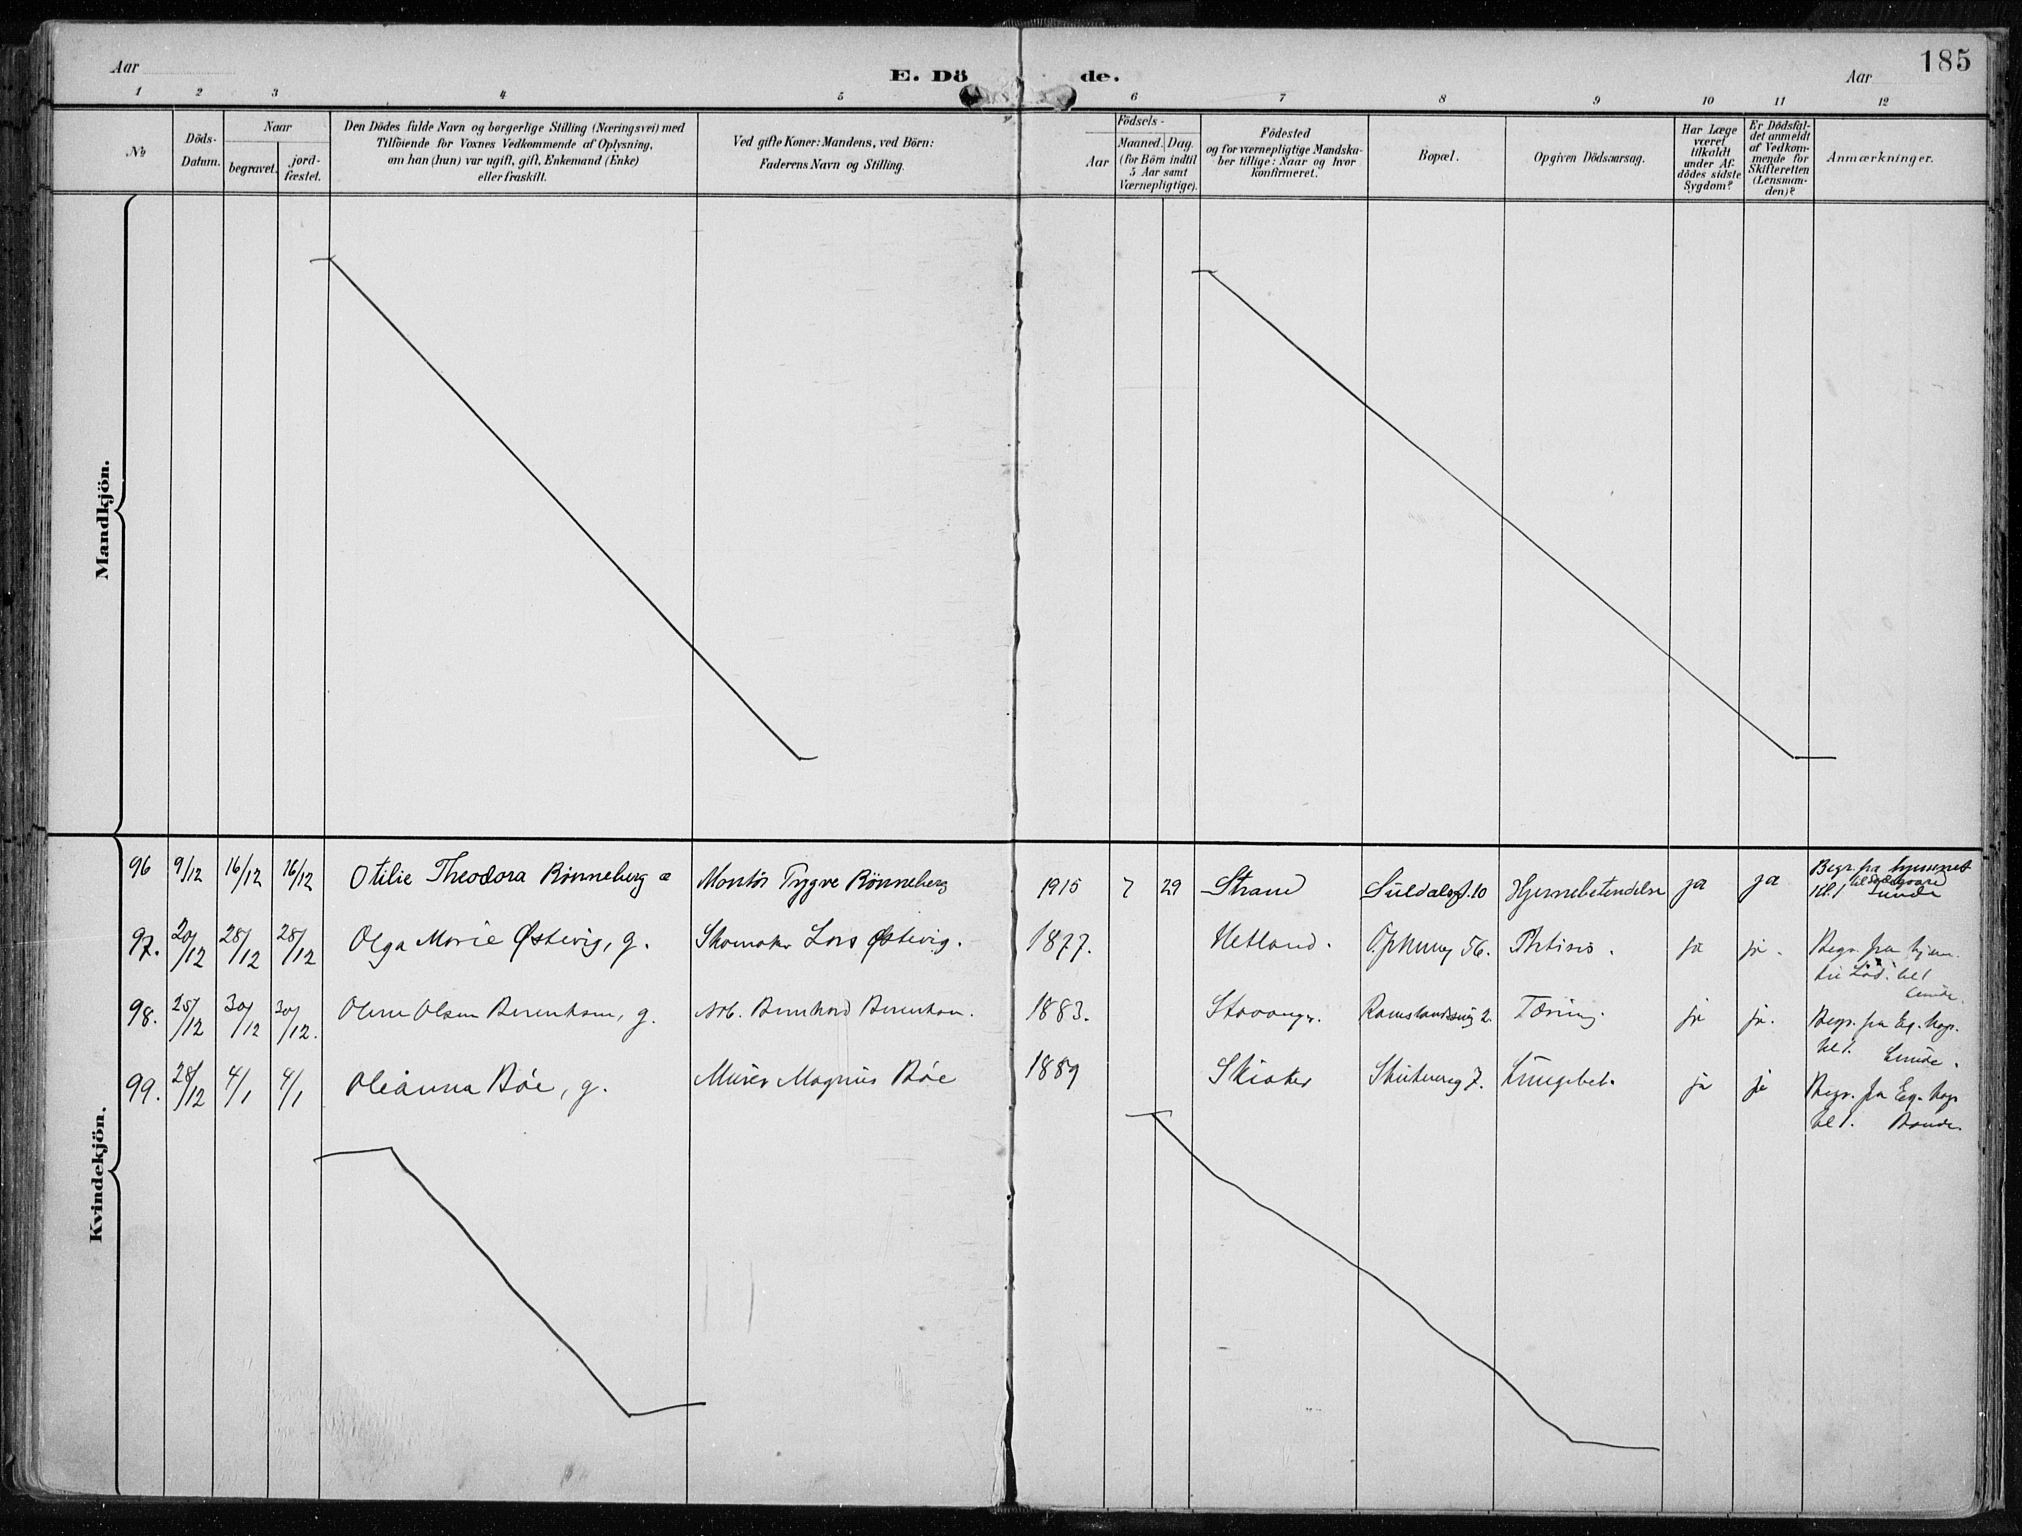 185
Aar
E. Dö de.
Aar
1 2 3 4 5 6 7 8 9 10 11 12
№
Döds-
Datum.
Naar
begravet.
jord-
fæstet.
Den Dödes fulde Navn og borgerlige Stilling (Næringsvei) med
Tilföiende for Voxnes Vedkommende af Oplysning,
om han (hun) var ugift, gift, Enkemand (Enke)
eller fraskilt.
Ved gifte Koner: Mandens, ved Börn:
Faderens Navn og Stilling.
Födsels-
Aar
Maaned.
Dag.
(for Börn indtil
5 Aar samt
Værnepligtige).
Födested
og for værnepligtige Mandska-
ber tillige: Naar og hvor
konfirmeret.
Bopæl.
Opgiven Dödsaarsag.
Har Læge
været
tilkaldt
under Af-
dödes sidste
Sygdom?
Er Dödsfal-
det anmeldt
af Vedkom-
mende for
Skifteretten
(Lensman-
den)?
Anmærkninger.
Mandkjön.
Kvindekjön.
96 9/12 16/12 16/12 Otilie Theodora Rønneberg Montør Trygve Rønneberg 1915 7 29 Strand Suldalsgt. 10 Hjernebetendelse ja ja Begr. fra hjemmet
til
Kl. 1 Lunde
97. 20/12 28/12 28/12 Olga Marie Østevig, g. Skomaker Lars Østevig. 1877. Hetland. 56. Phtisis. ja ja. Begr. fra hjem.
kl 1
Lunde.
98. 25/12 30/12 30/12. Olsen g. Arb. 1883. Stavanger. 2. Tæring. ja ja. Begr. fra Eg. kap.
kl 1. Lunde.
99. 28/12 4/1 4/1 Oleanna Bøe, g. Murer Magnus Bøe 1889 7. Lungebet. ja ja Begr. fra Eg. kap
kl 1.